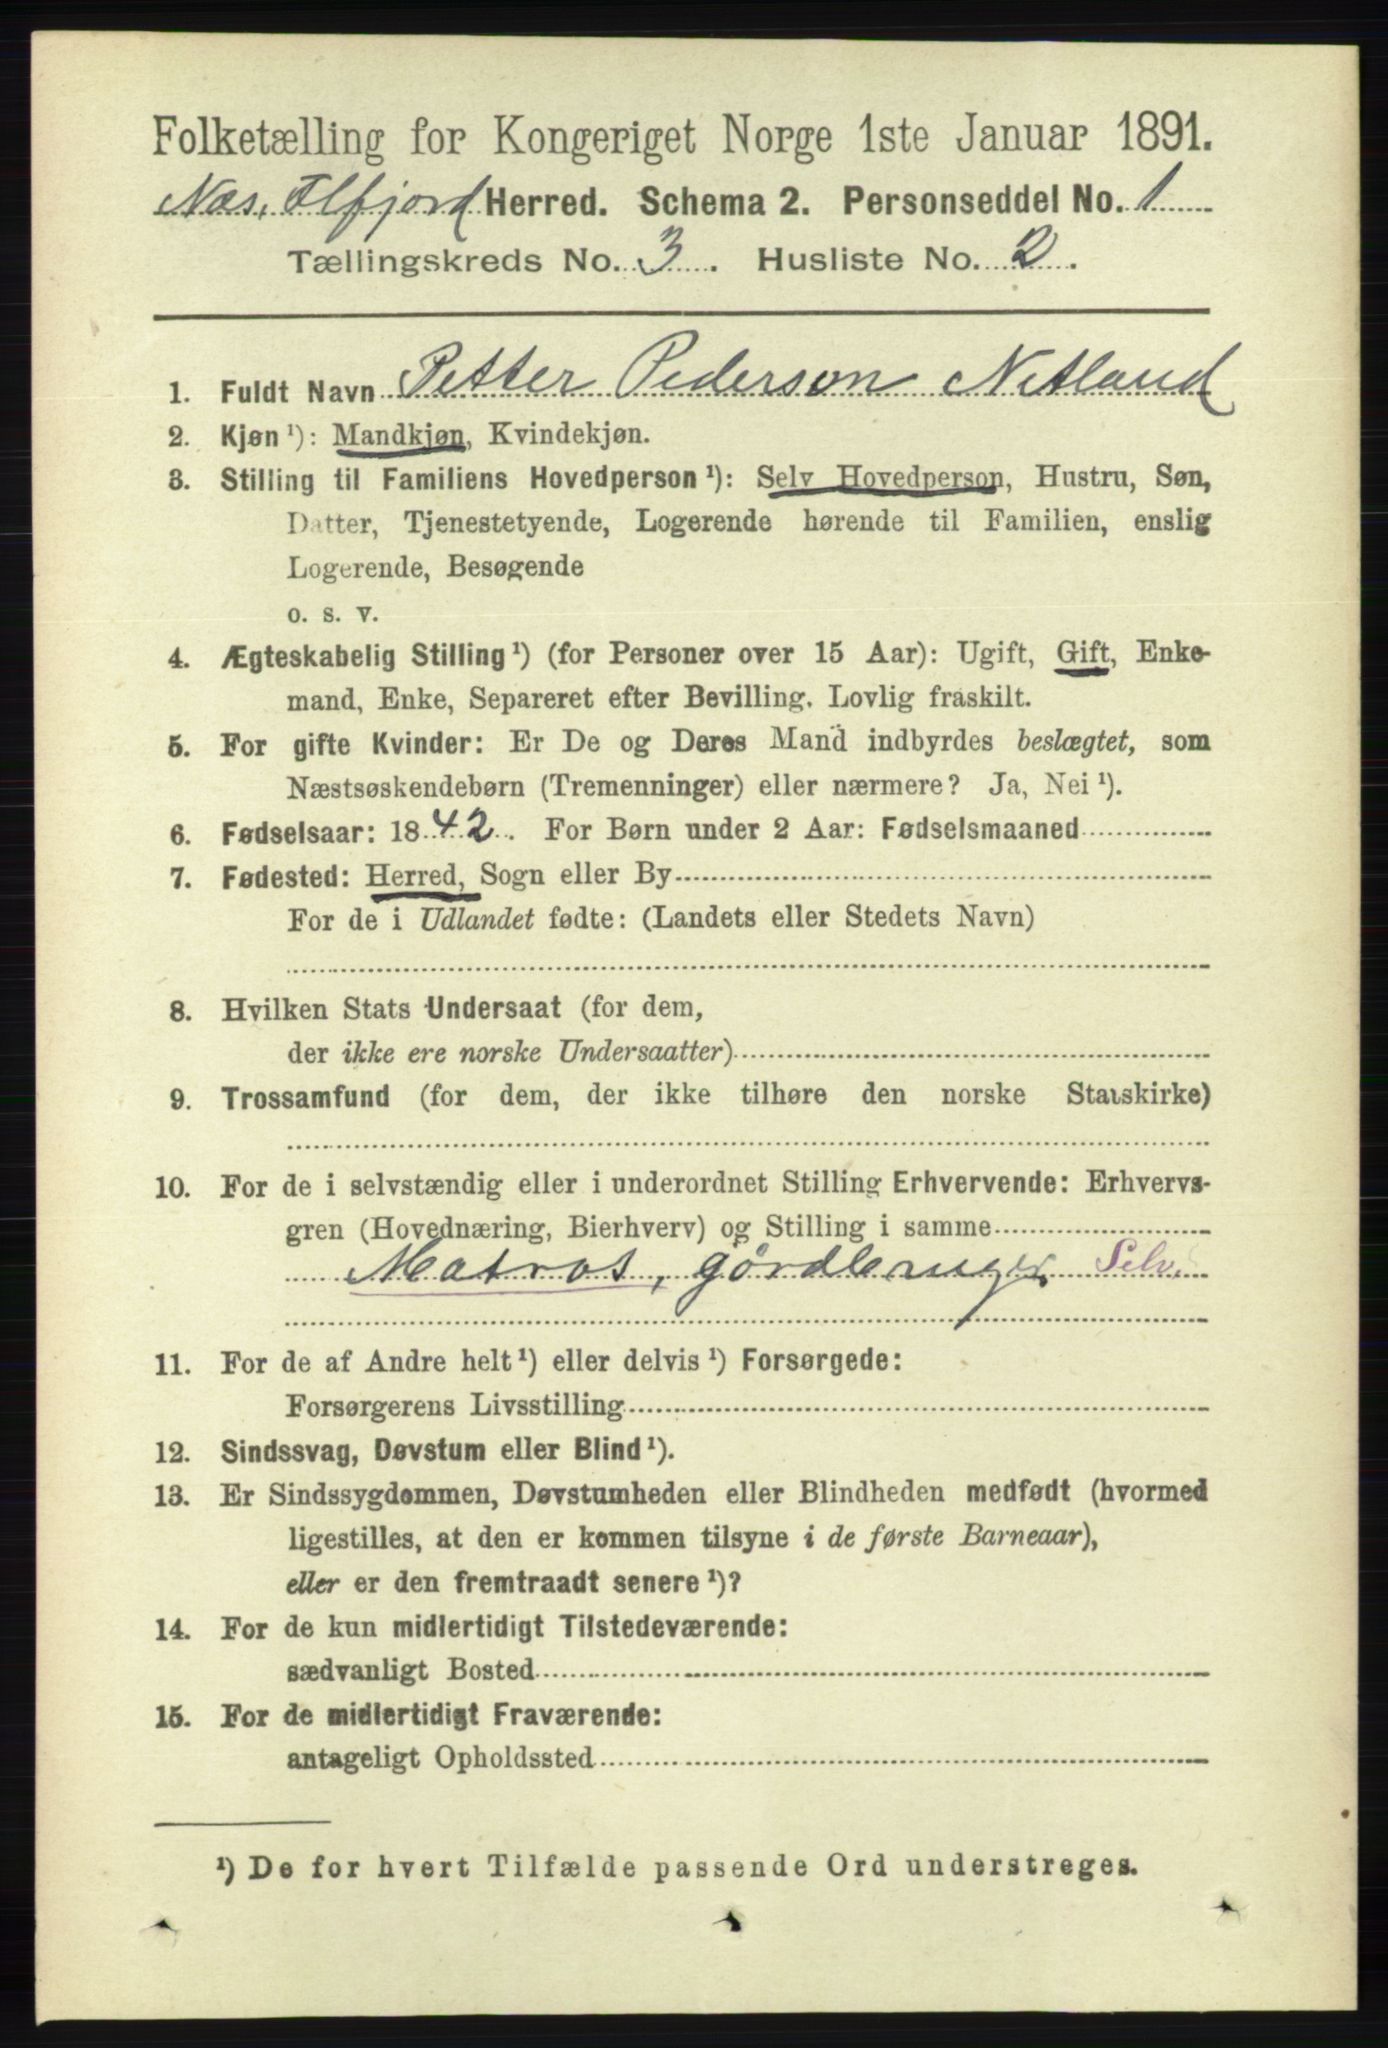 Folketælling for Kongeriget Norge 1ste Januar 1891.
Næs, Flfjord Herred. Schema 2. Personseddel No. 1
Tællingskreds No. 3. Husliste No. 2.
1. Fuldt Navn Petter Pederson Netland
2. Kjøn ¹): Mandkjøn, Kvindekjøn.
3. Stilling til Familiens Hovedperson ¹): Selv Hovedperson, Hustru, Søn,
Datter, Tjenestetyende, Logerende hørende til Familien, enslig
Logerende, Besøgende
o. s. v.
4. Ægteskabelig Stilling ¹) (for Personer over 15 Aar): Ugift, Gift, Enke-
mand, Enke, Separeret efter Bevilling. Lovlig fraskilt.
5. For gifte Kvinder: Er De og Deres Mand indbyrdes beslægtet, som
Næstsøskendebørn (Tremenninger) eller nærmere? Ja, Nei ¹).
6. Fødselsaar: 1842. For Børn under 2 Aar: Fødselsmaaned
7. Fødested: Herred, Sogn eller By
For de i Udlandet fødte: (Landets eller Stedets Navn)
8. Hvilken Stats Undersaat (for dem,
der ikke ere norske Undersaatter)
9. Trossamfund (for dem, der ikke tilhøre den norske Statskirke)
10. For de i selvstændig eller i underordnet Stilling Erhvervende: Erhvervs-
gren (Hovednæring, Bierhverv) og Stilling i samme
Matros, gördbruger. Selv.
11. For de af Andre helt ¹) eller delvis ¹) Forsørgede:
Forsørgerens Livsstilling
12. Sindssvag, Døvstum eller Blind ¹).
13. Er Sindssygdommen, Døvstumheden eller Blindheden medfødt (hvormed
ligestilles, at den er kommen tilsyne i de første Barneaar),
eller er den fremtraadt senere ¹)?
14. For de kun midlertidigt Tilstedeværende:
sædvanligt Bosted
15. For de midlertidigt Fraværende:
antageligt Opholdssted
¹) De for hvert Tilfælde passende Ord understreges.